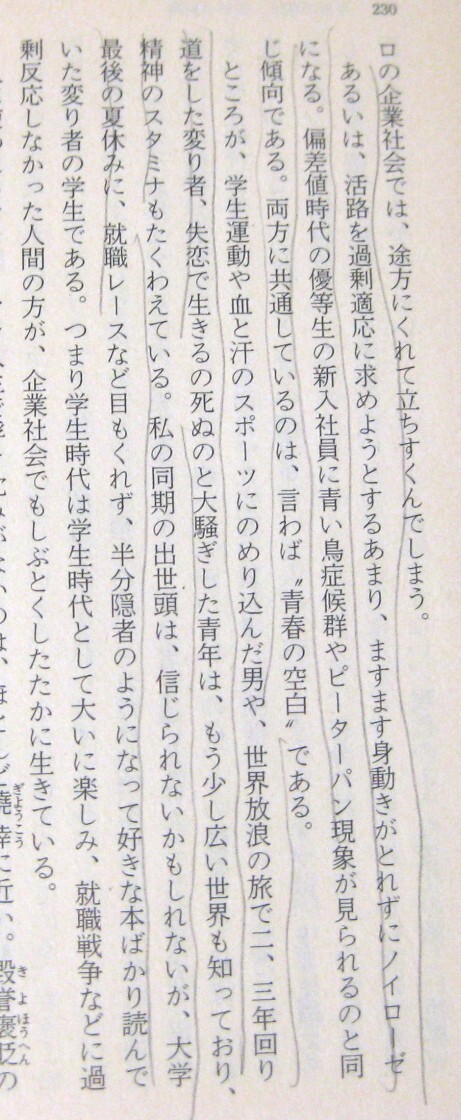 230
ロの企業社会では、途方にくれて立ちすくんでしまう。
あるいは、活路を過剰適応に求めようとするあまり、ますます身動きがとれずにノイローゼ
になる。偏差値時代の優等生の新入社員に青い鳥症候群やピーターパン現象が見られるのと同
じ傾向である。両方に共通しているのは、言わば〝青春の空白〟である。
ところが、学生運動や血と汗のスポーツにのめり込んだ男や、世界放浪の旅で二、三年回り
道をした変り者、失恋で生きるの死ぬのと大騒ぎした青年は、もう少し広い世界も知っており、
精神のスタミナもたくわえている。私の同期の出世頭は、信じられないかもしれないが、大学
最後の夏休みに、就職レースなど目もくれず、半分隠者のようになって好きな本ばかり読んで
いた変り者の学生である。つまり学生時代は学生時代として大いに楽しみ、就職戦争などに過
剰反応しなかった人間の方が、企業社会でもしぶとくしたたかに生きている。
に近い。毀誉褒貶の